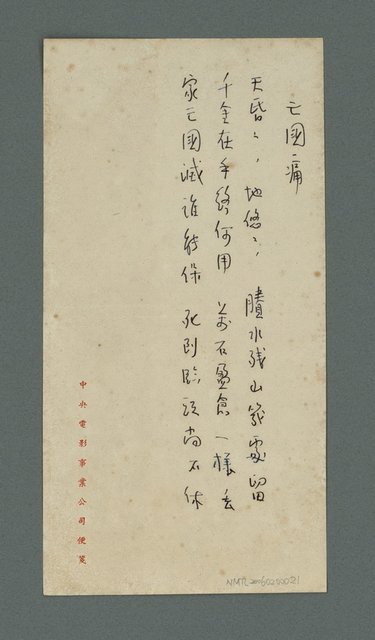 亡國痛
天昏々,地悠々,賸水殘山幾處留
千金在手終何用 萬石盈倉一樣丟
家亡國滅誰能保 死到臨頭尚不休
中央電影事業公司便箋